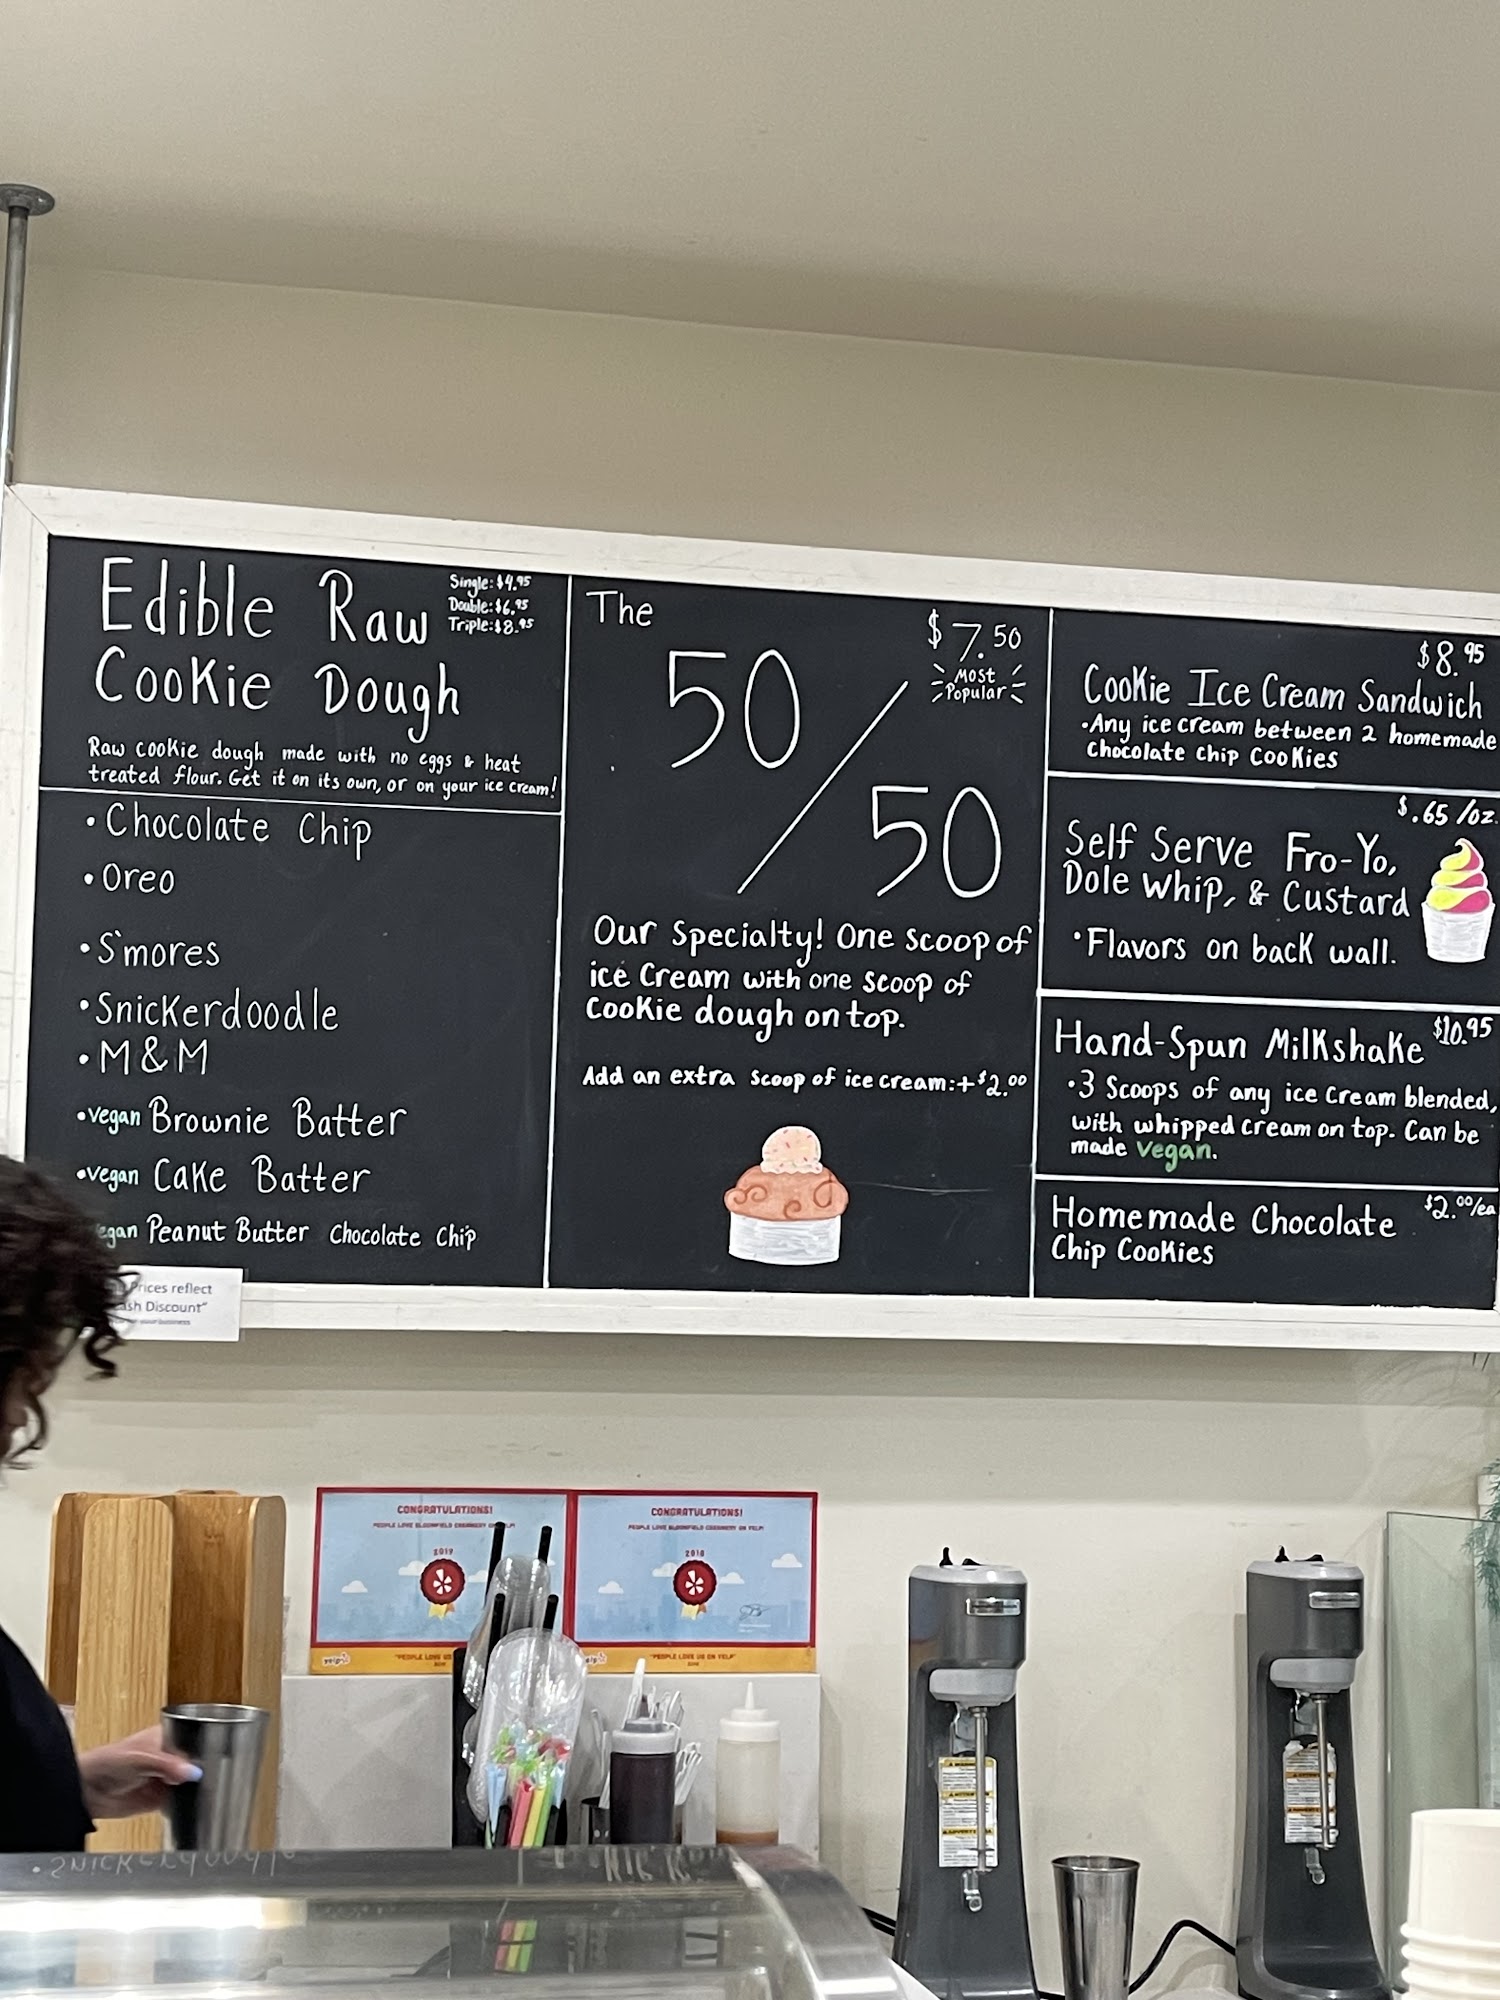 Edible Raw
Cookie Dough
Single: $4.95
Double: $6.95
Triple: $8.95
Raw cookie dough made with no eggs & heat
treated flour. Get it on its own, or on your ice cream!
• Chocolate Chip
• Oreo
• S'mores
• Snickerdoodle
• M&M
• vegan Brownie Batter
• vegan Cake Batter
Peanut Butter Chocolate Chip
Prices reflect
Discount"
The
50/50
$7.50
Most
Popular
Our Specialty! One scoop of
ice cream with one scoop of
cookie dough on top.
Add an extra scoop of ice cream: + $2.00
$8.95
Cookie Ice Cream Sandwich
• Any ice cream between 2 homemade
chocolate chip cookies
$.65/oz.
Self Serve Fro-Yo,
Dole Whip, & Custard
• Flavors on back wall.
Hand-Spun Milkshake $10.95
• 3 scoops of any ice cream blended,
with whipped cream on top. Can be
made vegan.
Homemade Chocolate $2.00/ea
Chip Cookies
CONGRATULATIONS!
2019
yelp
"PEOPLE LOVE US
CONGRATULATIONS!
PEOPLE LOVE BLOOMFIELD CREAMERY ON YELP!
2018
"PEOPLE LOVE US ON YELP"